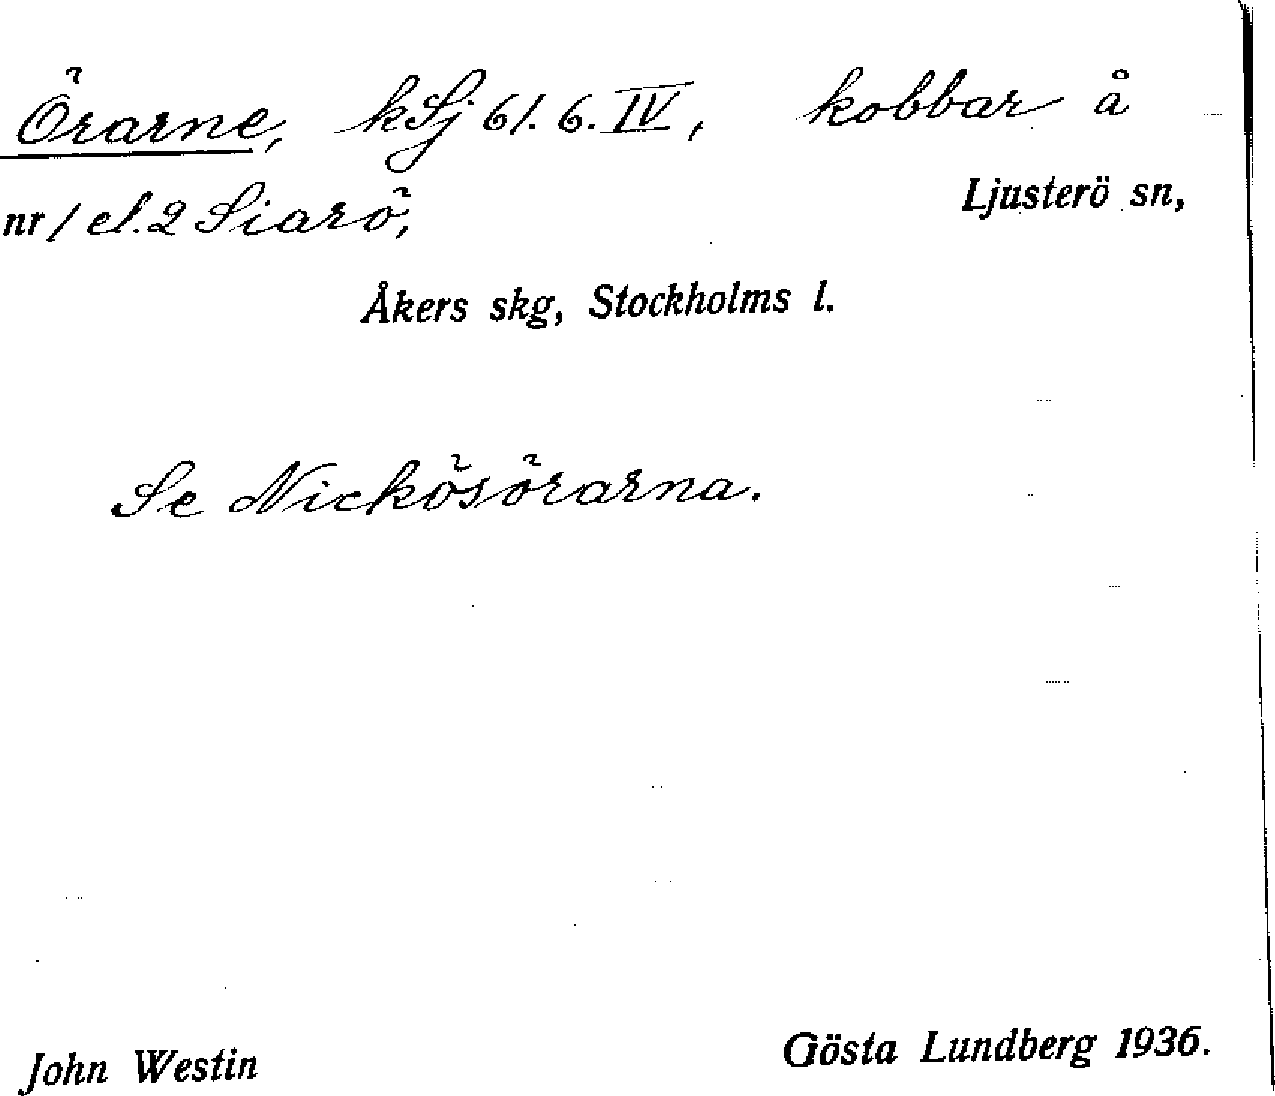 Örarne, kSj 61. 6. IV, kobbar å
nr 1 el. 2 Siarö, Ljusterö sn,
Åkers skg, Stockholms l.
Se Nickösörarna.
John Westin Gösta Lundberg 1936.